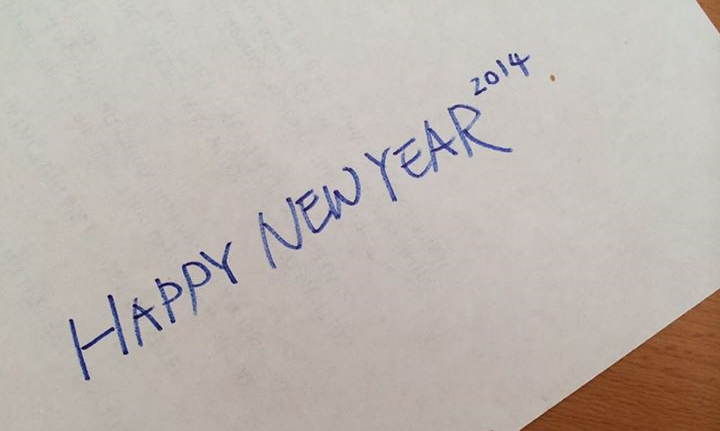 HAPPY NEW YEAR 2014